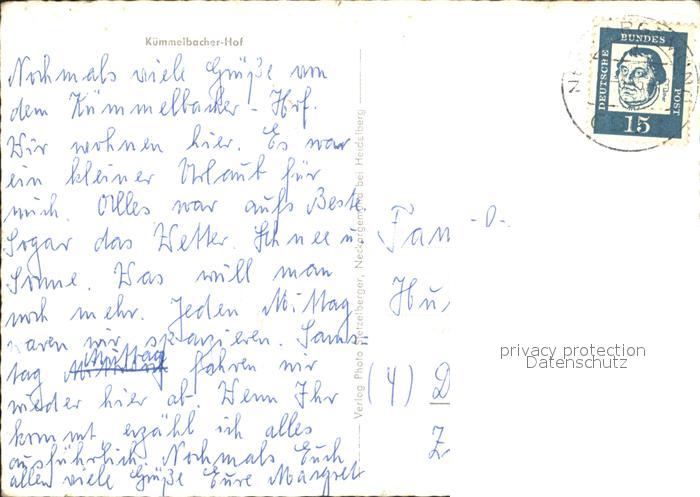 Kümmelbacher-Hof
Nochmals viele Grüße von
dem Kümmelbacher-Hof.
Wir wohnen hier. Es war
ein kleiner Urlaub für
mich. Alles war aufs Beste.
Sogar das Wetter. Schnee u.
Sonne. Was will man
noch mehr. Jeden Mittag
waren wir spazieren. Sams
tag Mittag fahren wir
wieder hier ab. Wenn Ihr
kommt erzähl ich alles
ausführlich. Nochmals Euch
allen viele Grüße Eure Margret
Verlag Photo Metzelberger, Neckargemünd bei Heidelberg
DEUTSCHE BUNDES POST
15
Fam
-0-
Hu
(4) D
Z
privacy protection
Datenschutz